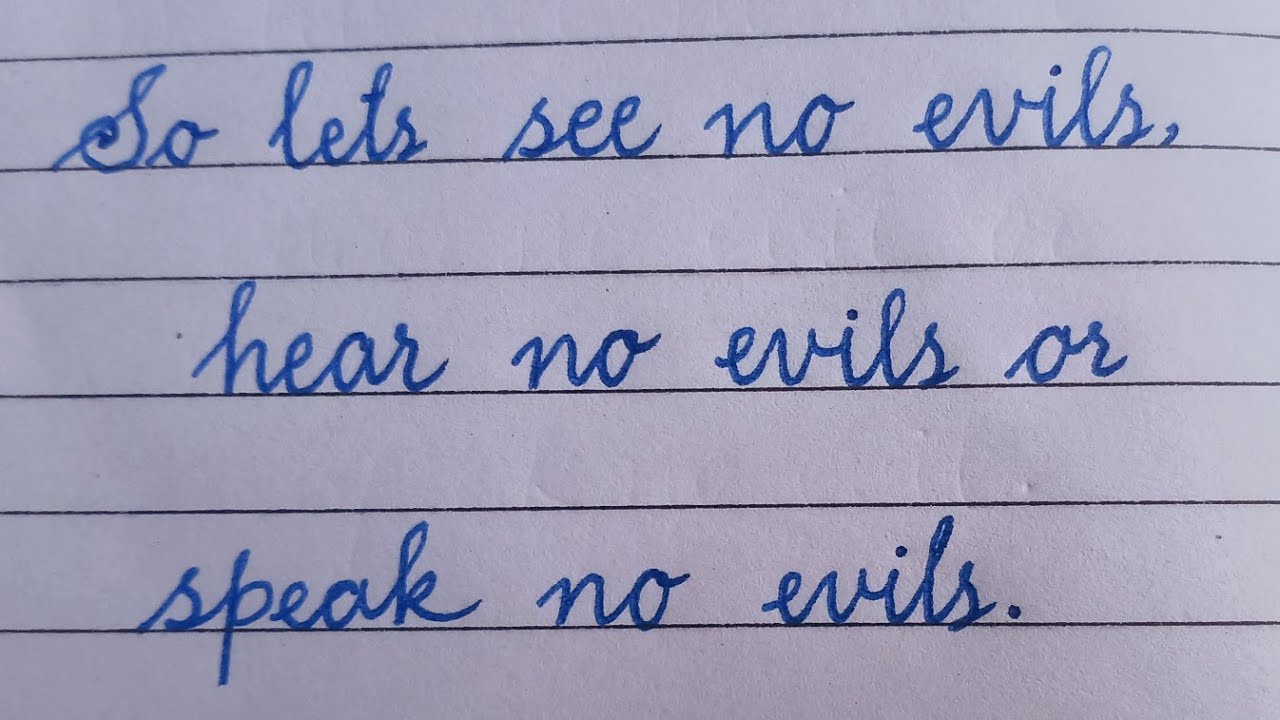 So lets see no evils,
hear no evils or
speak no evils.